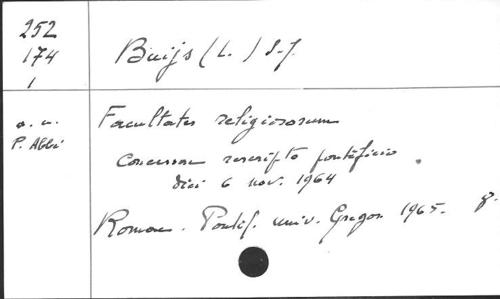 252
174
1
Buijs (L.) S.J.
a. u.
P. Abbé
Facultates religiosorum
Concessae rescripto pontificio
diei 6 nov. 1964
Romae. Pontif. univ. Gregor. 1965. 8.